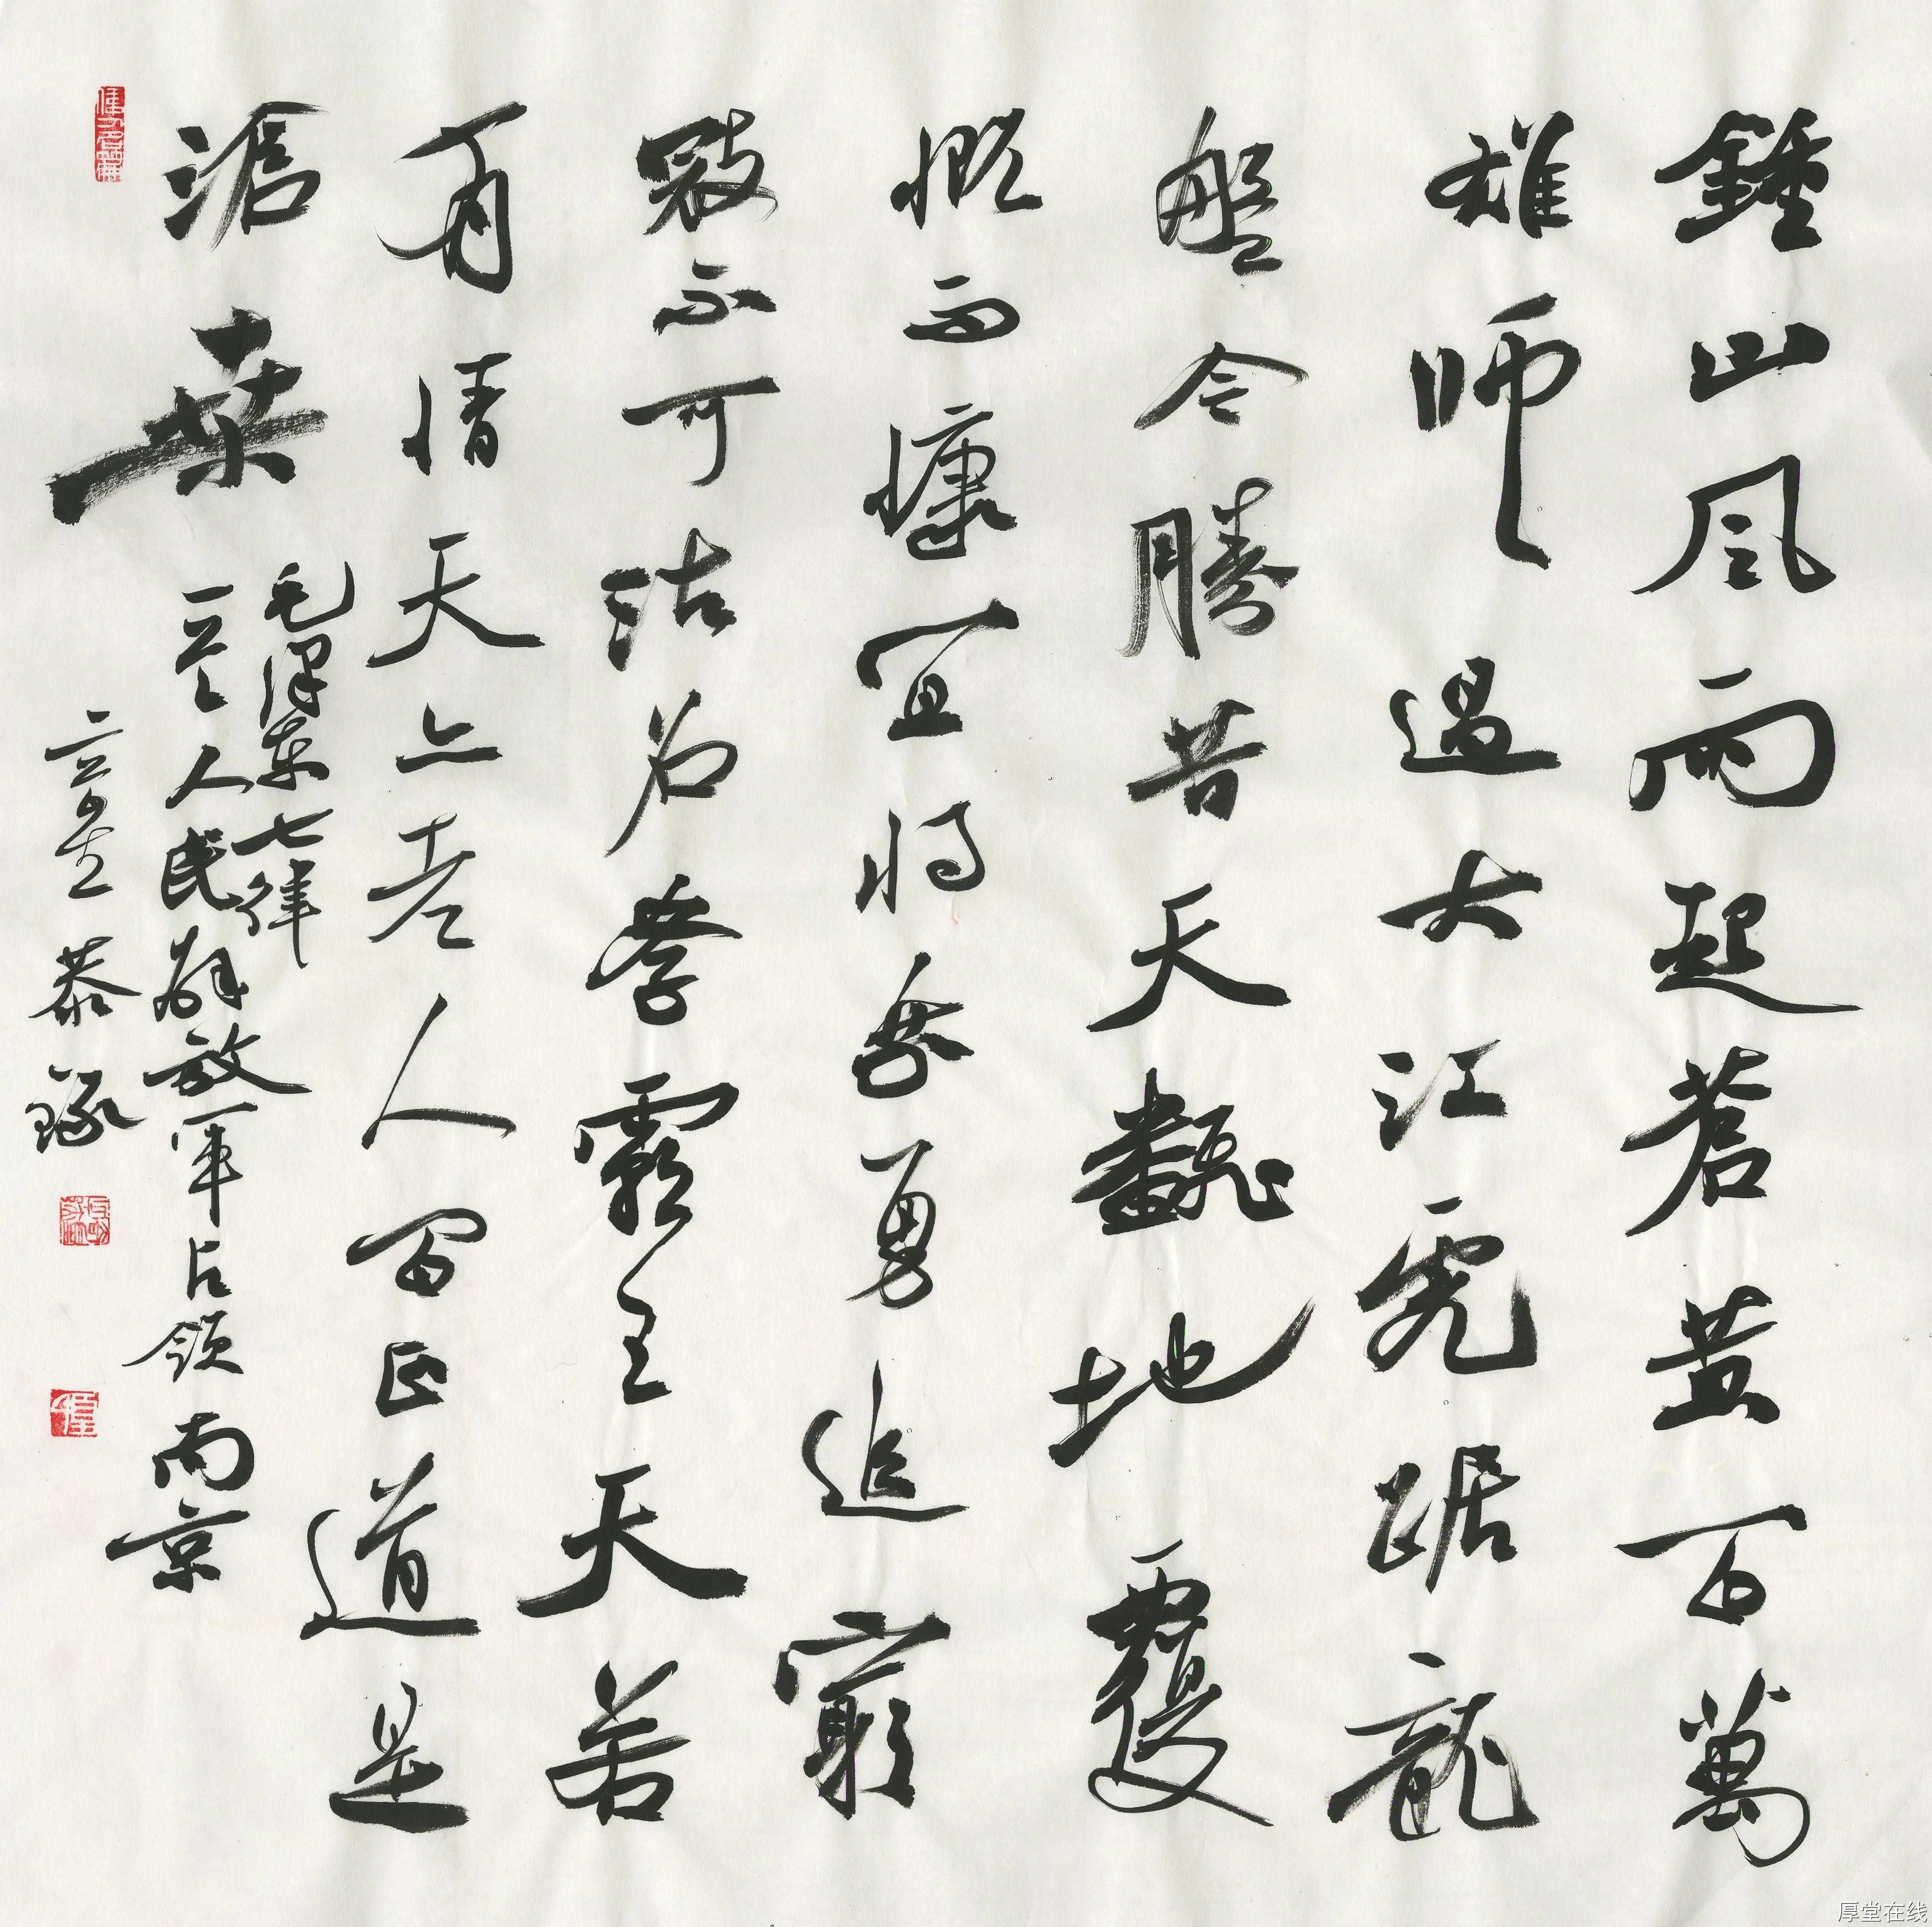 鍾山风雨起蒼黄百萬
雄师過大江虎踞龍
盤今勝昔天翻地覆
慨而慷宜将剩勇追窮
寇不可沽名學霸王天若
有情天亦老人间正道是
滄桑
毛澤东七律
一首人民解放军占领南京
恭録
厚堂在线